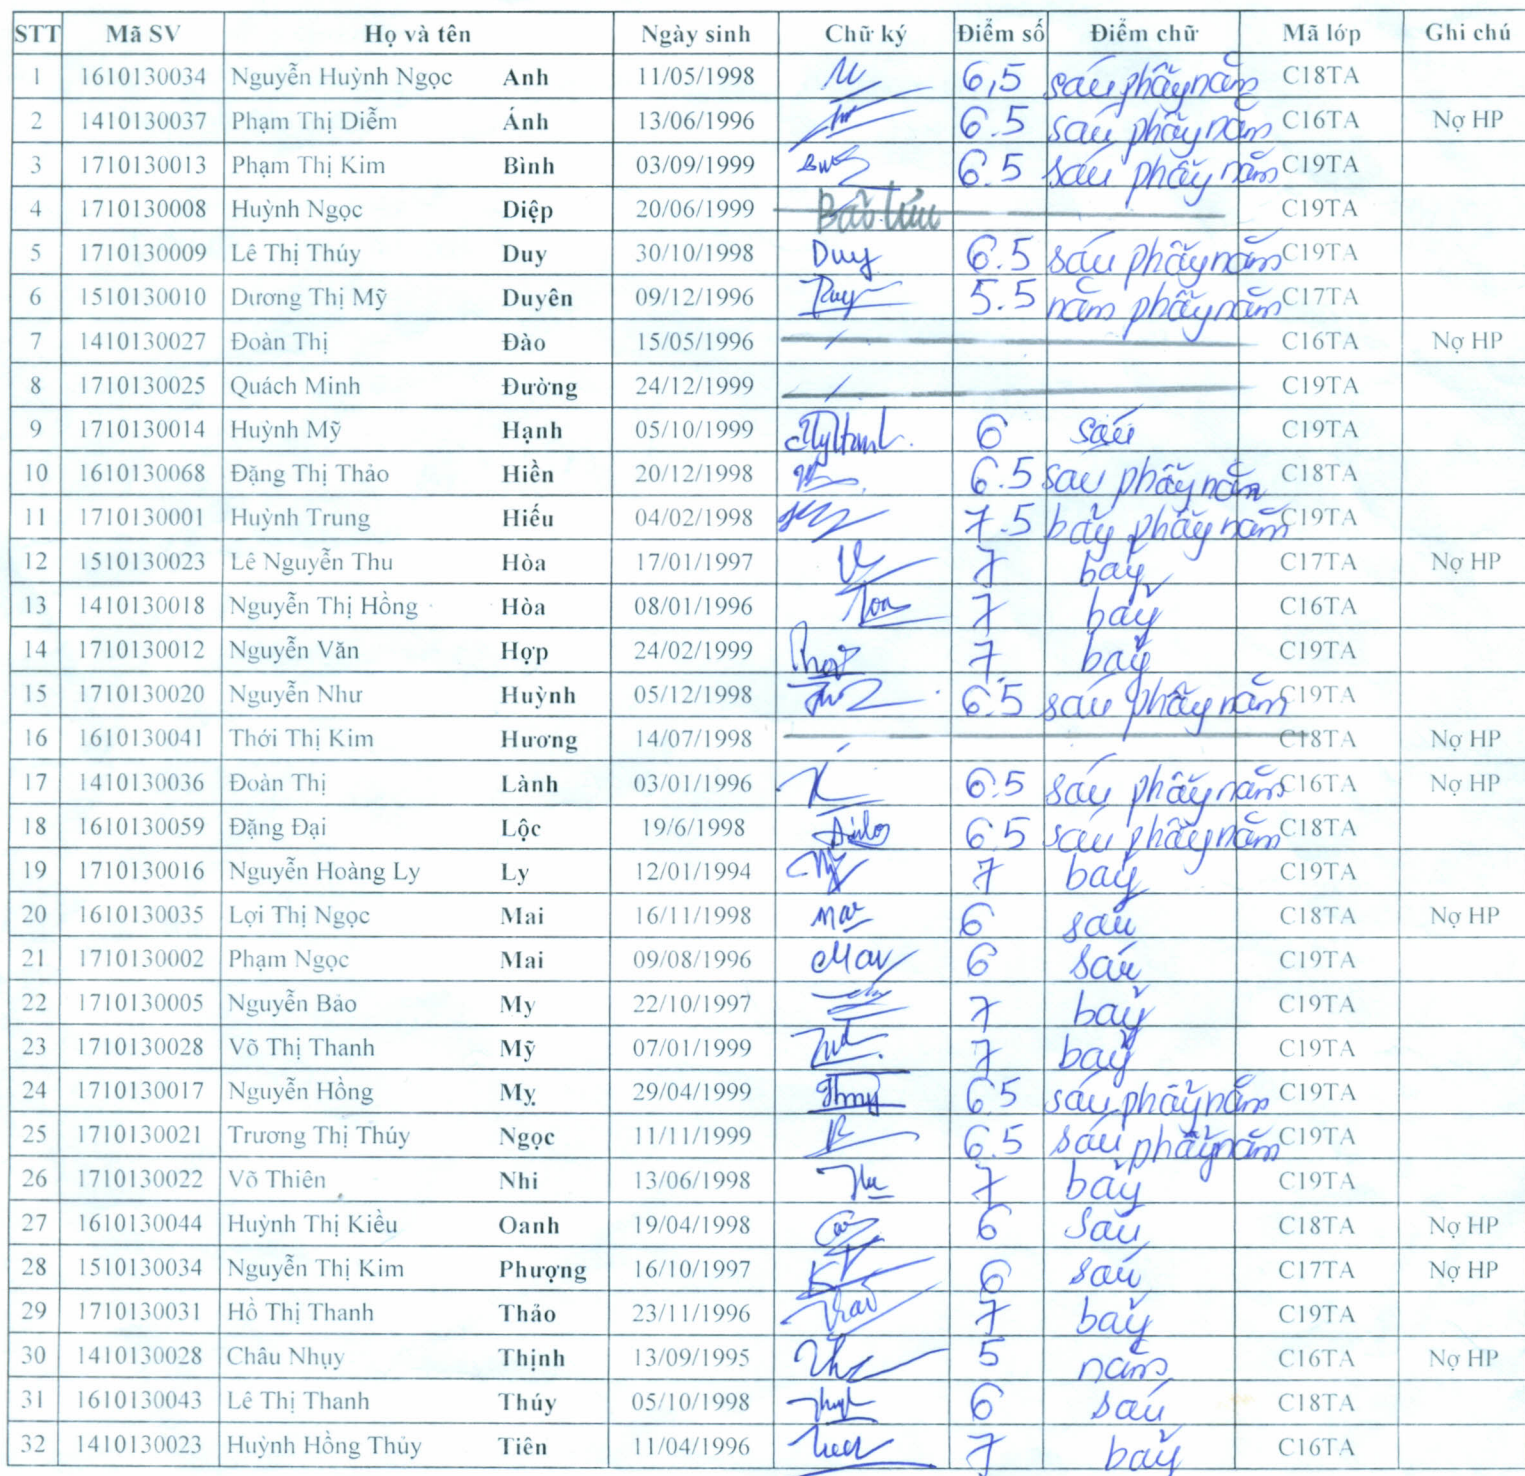 STT Mã SV Họ và tên Ngày sinh Chữ ký Điểm số Điểm chữ Mã lớp Ghi chú
1 1610130034 Nguyễn Huỳnh Ngọc Anh 11/05/1998 6,5 sáu phẩy năm C18TA
2 1410130037 Phạm Thị Diễm Ánh 13/06/1996 6.5 sáu phẩy năm C16TA Nợ HP
3 1710130013 Phạm Thị Kim Bình 03/09/1999 6.5 sáu phẩy năm C19TA
4 1710130008 Huỳnh Ngọc Diệp 20/06/1999 Bảo lưu C19TA
5 1710130009 Lê Thị Thúy Duy 30/10/1998 Duy 6.5 sáu phẩy năm C19TA
6 1510130010 Dương Thị Mỹ Duyên 09/12/1996 5.5 năm phẩy năm C17TA
7 1410130027 Đoàn Thị Đào 15/05/1996 C16TA Nợ HP
8 1710130025 Quách Minh Đường 24/12/1999 C19TA
9 1710130014 Huỳnh Mỹ Hạnh 05/10/1999 6 sáu C19TA
10 1610130068 Đặng Thị Thảo Hiền 20/12/1998 6.5 sáu phẩy năm C18TA
11 1710130001 Huỳnh Trung Hiếu 04/02/1998 7.5 bảy phẩy năm C19TA
12 1510130023 Lê Nguyễn Thu Hòa 17/01/1997 7 bảy C17TA Nợ HP
13 1410130018 Nguyễn Thị Hồng Hòa 08/01/1996 7 bảy C16TA
14 1710130012 Nguyễn Văn Hợp 24/02/1999 7 bảy C19TA
15 1710130020 Nguyễn Như Huỳnh 05/12/1998 6.5 sáu phẩy năm C19TA
16 1610130041 Thới Thị Kim Hương 14/07/1998 C18TA Nợ HP
17 1410130036 Đoàn Thị Lành 03/01/1996 6.5 sáu phẩy năm C16TA Nợ HP
18 1610130059 Đặng Đại Lộc 19/6/1998 6.5 sáu phẩy năm C18TA
19 1710130016 Nguyễn Hoàng Ly Ly 12/01/1994 7 bảy C19TA
20 1610130035 Lợi Thị Ngọc Mai 16/11/1998 Mai 6 sáu C18TA Nợ HP
21 1710130002 Phạm Ngọc Mai 09/08/1996 Mai 6 sáu C19TA
22 1710130005 Nguyễn Bảo My 22/10/1997 7 bảy C19TA
23 1710130028 Võ Thị Thanh Mỹ 07/01/1999 7 bảy C19TA
24 1710130017 Nguyễn Hồng Mỵ 29/04/1999 6.5 sáu phẩy năm C19TA
25 1710130021 Trương Thị Thúy Ngọc 11/11/1999 6.5 sáu phẩy năm C19TA
26 1710130022 Võ Thiên Nhi 13/06/1998 7 bảy C19TA
27 1610130044 Huỳnh Thị Kiều Oanh 19/04/1998 6 sáu C18TA Nợ HP
28 1510130034 Nguyễn Thị Kim Phượng 16/10/1997 6 sáu C17TA Nợ HP
29 1710130031 Hồ Thị Thanh Thảo 23/11/1996 7 bảy C19TA
30 1410130028 Châu Nhụy Thịnh 13/09/1995 5 năm C16TA Nợ HP
31 1610130043 Lê Thị Thanh Thúy 05/10/1998 6 sáu C18TA
32 1410130023 Huỳnh Hồng Thủy Tiên 11/04/1996 7 bảy C16TA